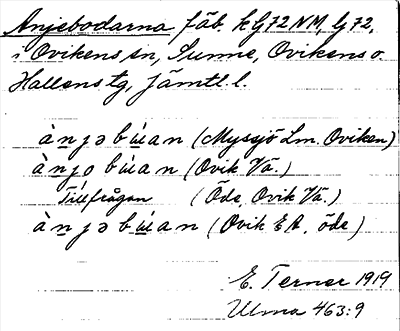 Anjebodarna fäb. k G72 NM, lg 72,
i Ovikens sn, Sunne, Ovikens o.
Hallens tg, Jämtl. l.
ànjəbúan (Myssjö Lm. Oviken)
ànjobúan (Ovik Vä.)
Tillfrågan (Öde, Ovik Vä.)
ànjəbúan (Ovik EA, öde)
E. Terner 1919
Ulma 463:9